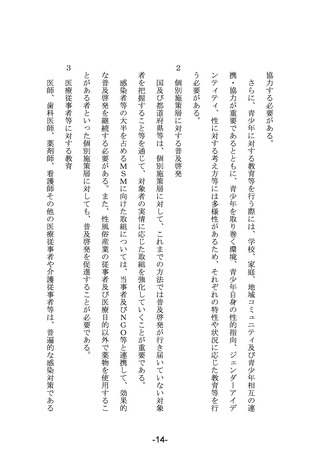 協力する必要がある。
さらに、青少年に対する教育等を行う際には、学校、家庭、地域コミュニティ及び青少年相互の連
携・協力が重要であるとともに、青少年を取り巻く環境、青少年自身の性的指向、ジェンダーアイデ
ンティティ、性に対する考え方等には多様性があるため、それぞれの特性や状況に応じた教育等を行
う必要がある。
２　個別施策層に対する普及啓発
国及び都道府県等は、個別施策層に対して、これまでの方法では普及啓発が行き届いていない対象
者を把握すること等を通じて、対象者の実情に応じた取組を強化していくことが重要である。
感染者等の大半を占めるＭＳＭに向けた取組については、当事者及びＮＧＯ等と連携して、効果的
な普及啓発を継続する必要がある。また、性風俗産業の従事者及び医療目的以外で薬物を使用するこ
とがある者といった個別施策層に対しても、普及啓発を促進することが必要である。
３　医療従事者等に対する教育
医師、歯科医師、薬剤師、看護師その他の医療従事者や介護従事者等は、普遍的な感染対策である
-14-